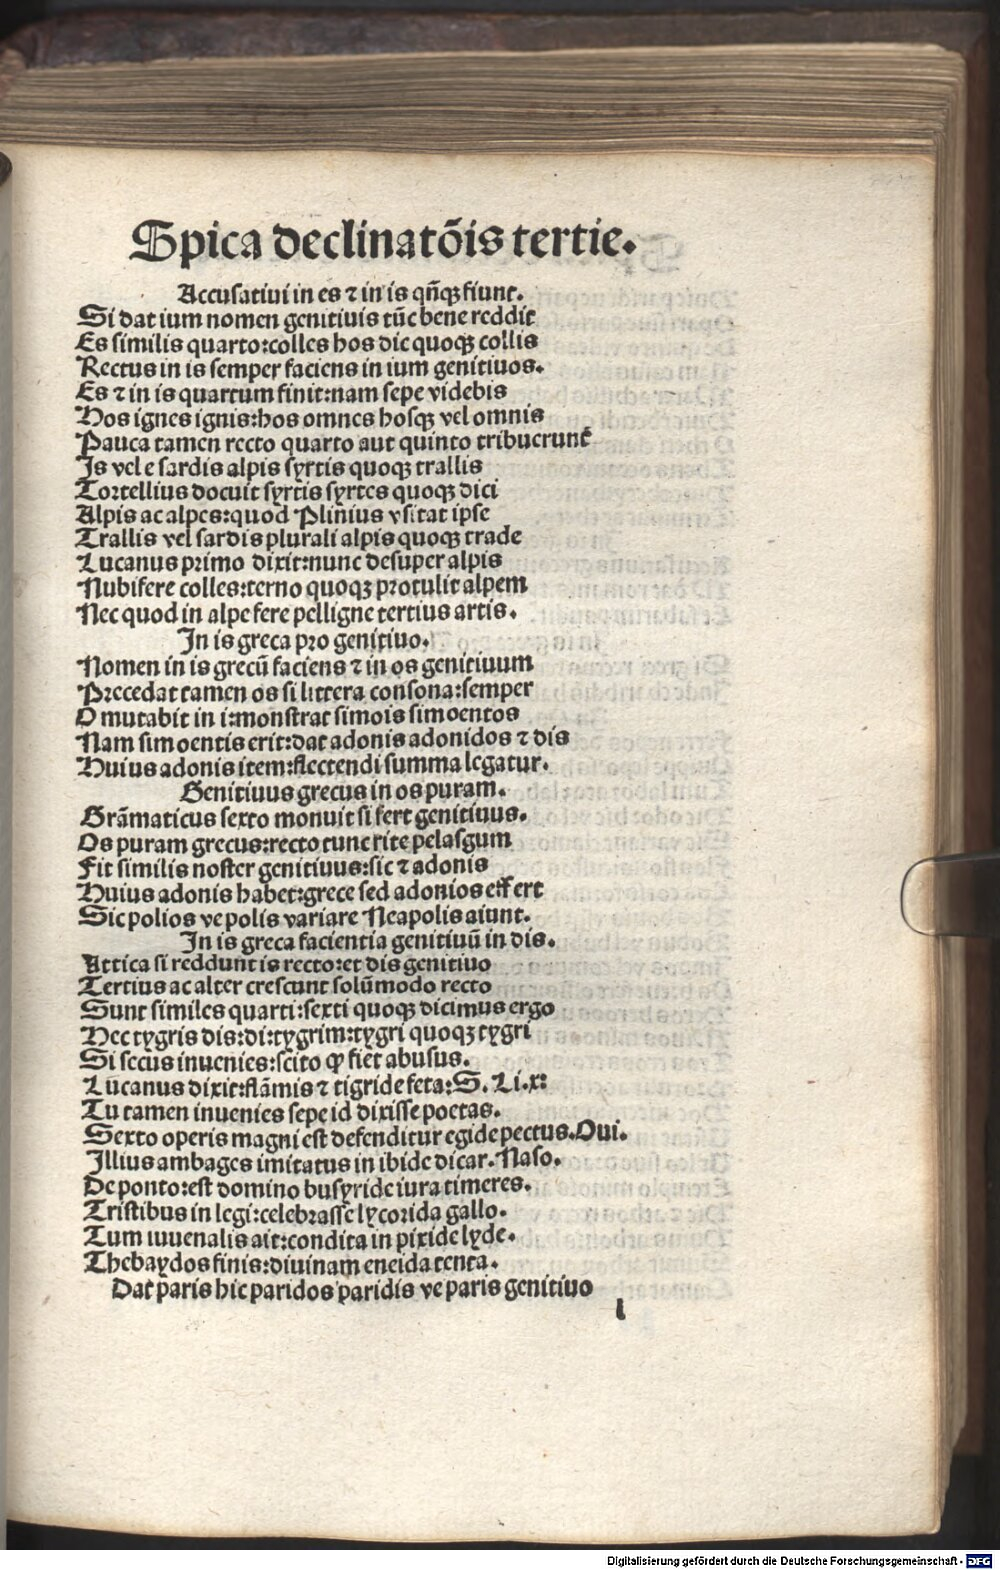 Spica declinatõis tertie.
Accusatiui in es ⁊ in is qñqꝫ fiunt.
Si dat ium nomen genitiuis tũc bene reddit
Es similis quarto:colles hos dic quoqꝫ collis
Rectus in is semper faciens in ium genitiuos.
Es ⁊ in is quartum finit:nam sepe videbis
Hos ignes ignis:hos omnes hosqꝫ vel omnis
Pauca tamen recto quarto aut quinto tribuerunt
Is vel e sardis alpis syrtis quoqꝫ trallis
Tortellius docuit syrtis syrtes quoqꝫ dici
Alpis ac alpes:quod Plinius vsitat ipse
Trallis vel sardis plurali alpis quoqꝫ trade
Lucanus primo dixit:nunc desuper alpis
Nubifere colles:terno quoqꝫ protulit alpem
Nec quod in alpe fere pelligne tertius artis.
In is greca pro genitiuo.
Nomen in is grecũ faciens ⁊ in os genitiuum
Precedat tamen os si littera consona:semper
O mutabit in i:monstrat simois simoentos
Nam simoentis erit:dat adonis adonidos ⁊ dis
Huius adonis item:flectendi summa legatur.
Genitiuus grecus in os puram.
Grãmaticus sexto monuit si fert genitiuus.
Os puram grecus:recto tunc rite pelasgum
Fit similis noster genitiuus:sic ⁊ adonis
Huius adonis habet:grece sed adonios effert
Sic polios ve polis variare Neapolis aiunt.
In is greca facientia genitiuũ in dis.
Attica si reddunt is recto:et dis genitiuo
Tertius ac alter crescunt solũmodo recto
Sunt similes quarti:sexti quoqꝫ dicimus ergo
Hec tygris dis:di:tygrim:tygri quoqꝫ tygri
Si secus inuenies:scito ꝙ fiet abusus.
Lucanus dixit:flãmis ⁊ tigride feta:S. Li.x:
Tu tamen inuenies sepe id dixisse poetas.
Sexto operis magni est defenditur egide pectus.Oui.
Illius ambages imitatus in ibide dicar.Naso.
De ponto:est domino busyride iura timeres.
Tristibus in legi:celebrasse lycorida gallo.
Tum iuuenalis ait:condita in pixide lyde.
Thebaydos finis:diuinam eneida tenta.
Dat paris hic paridos paridis ve paris genitiuo
l
Digitalisierung gefördert durch die Deutsche Forschungsgemeinschaft - DFG